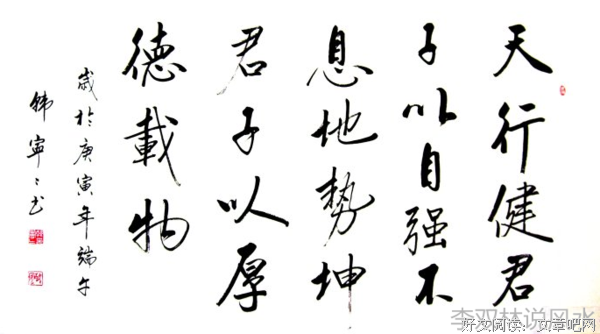 天行健君
子以自强不
息地勢坤
君子以厚
德載物
歲於庚寅年端午
韩寧〻书
李双林说风水
好文阅读：文章吧网